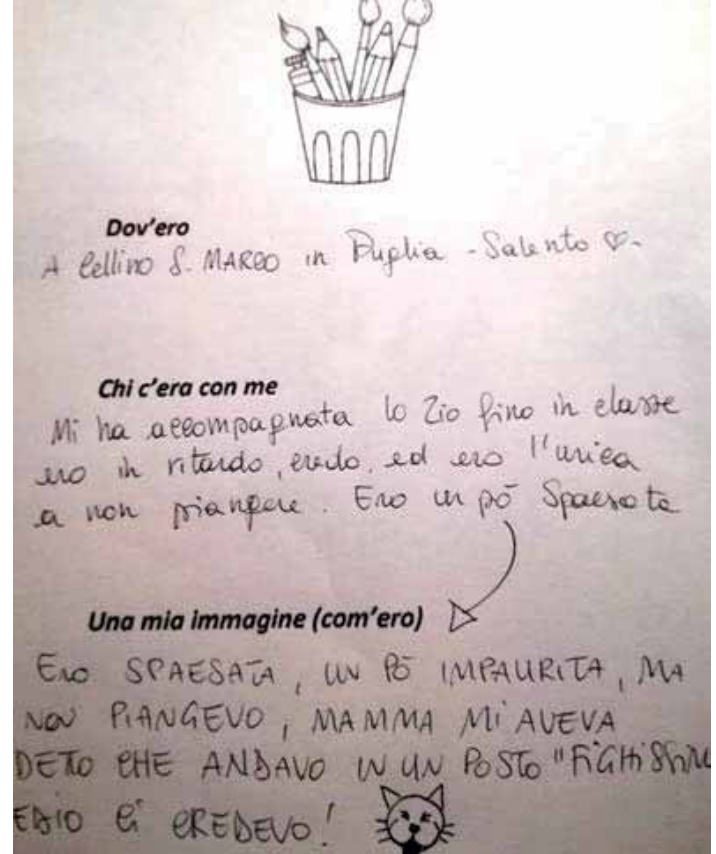 Dov'ero
A Cellino S. MARCO in Puglia - Salento ♡-
Chi c'era con me
Mi ha accompagnata lo Zio fino in classe
ero in ritardo, credo, ed ero l'unica
a non piangere. Ero un pò Spaesata
Una mia immagine (com'ero)
Ero SPAESATA, UN PÒ IMPAURITA, MA
NON PIANGEVO, MAMMA MI AVEVA
DETTO CHE ANDAVO IN UN POSTO "FiGHiSSiM
ED IO Ci CREDEVO!